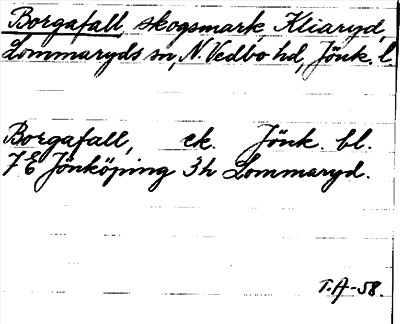 Borgafall, skogsmark, Kliaryd,
Lommaryds sn, N. Vedbo hd, Jönk. l.
Borgafall, ek. Jönk. bl.
7 E Jönköping 3 h Lommaryd.
T.A-58.